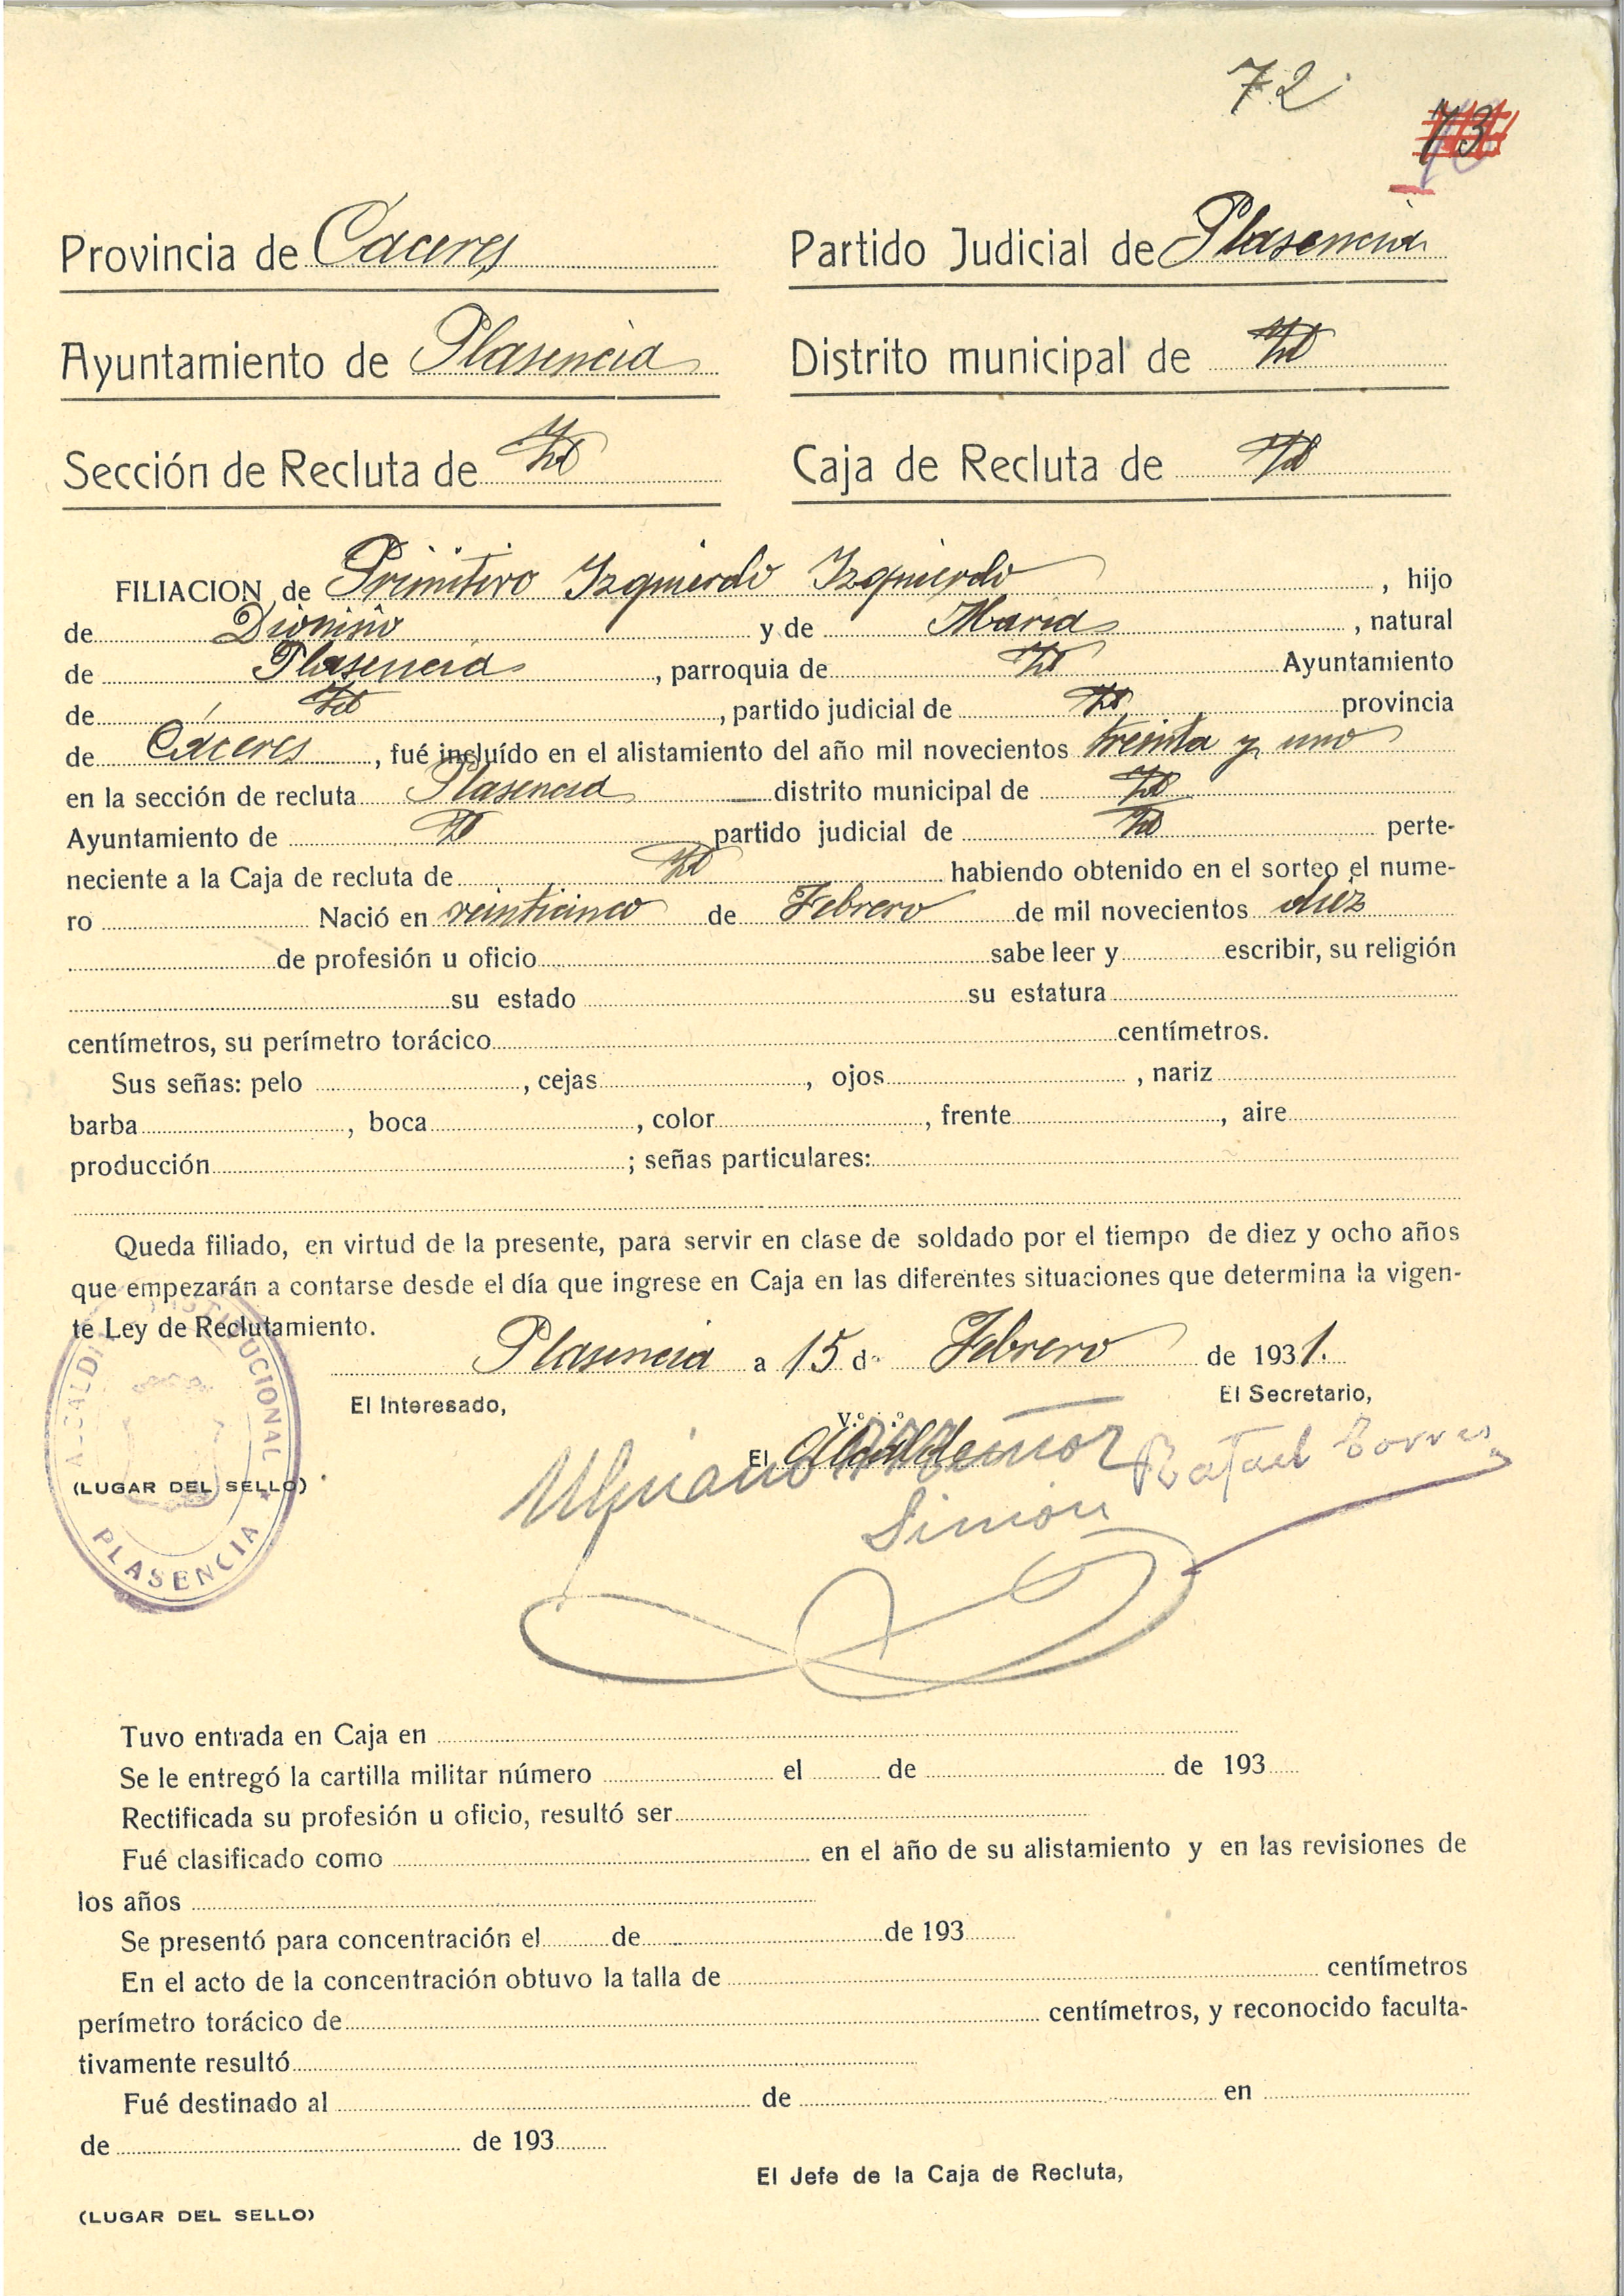 72
73
Provincia de Cáceres
Partido Judicial de Plasencia
Ayuntamiento de Plasencia
Distrito municipal de Id
Sección de Recluta de Id
Caja de Recluta de Id
FILIACION de Primitivo Izquierdo Izquierdo, hijo
de Dionisio y de Maria, natural
de Plasencia, parroquia de Id Ayuntamiento
de Id, partido judicial de Id provincia
de Cáceres, fué incluído en el alistamiento del año mil novecientos treinta y uno
en la sección de recluta Plasencia distrito municipal de Id
Ayuntamiento de Id partido judicial de Id perte-
neciente a la Caja de recluta de Id habiendo obtenido en el sorteo el nume-
ro Nació en veinticinco de Febrero de mil novecientos diez
de profesión u oficio sabe leer y escribir, su religión
su estado su estatura
centímetros, su perímetro torácico centímetros.
Sus señas: pelo , cejas , ojos , nariz
barba , boca , color , frente , aire
producción ; señas particulares:
Queda filiado, en virtud de la presente, para servir en clase de soldado por el tiempo de diez y ocho años
que empezarán a contarse desde el día que ingrese en Caja en las diferentes situaciones que determina la vigen-
te Ley de Reclutamiento.
Plasencia a 15 de Febrero de 1931.
El Interesado,
El Secretario,
V.º
El Alcalde
Rafael Torres
Simón
(LUGAR DEL SELLO)
ALCALDIA CONSTITUCIONAL
PLASENCIA
Tuvo entrada en Caja en
Se le entregó la cartilla militar número el de de 193
Rectificada su profesión u oficio, resultó ser
Fué clasificado como en el año de su alistamiento y en las revisiones de
los años
Se presentó para concentración el de de 193
En el acto de la concentración obtuvo la talla de centímetros
perímetro torácico de centímetros, y reconocido faculta-
tivamente resultó
Fué destinado al de en
de de 193
El Jefe de la Caja de Recluta,
(LUGAR DEL SELLO)